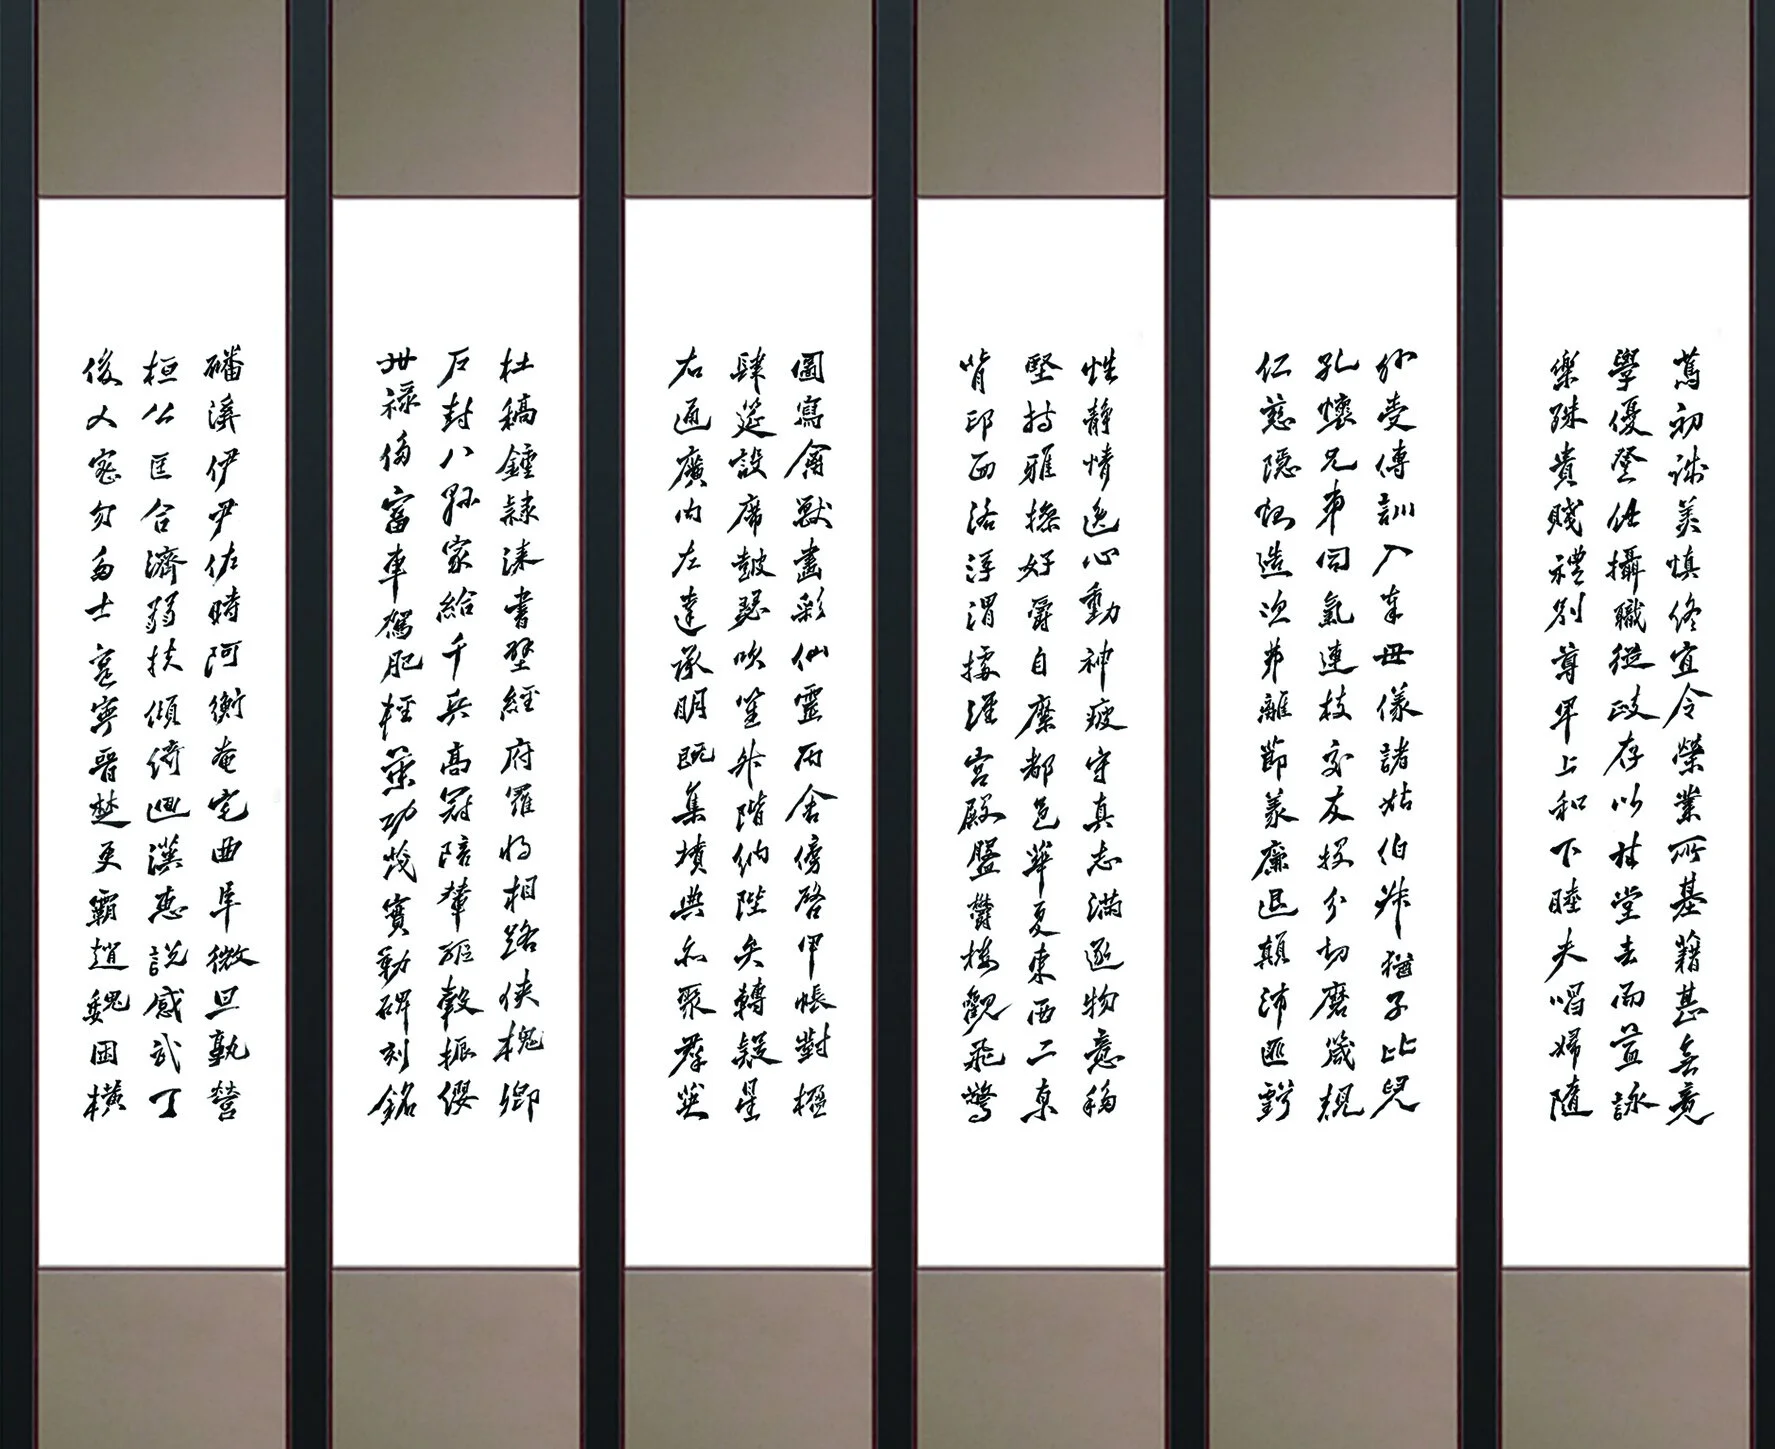 篤初誠美慎終宜令榮業所基籍甚無竟
學優登仕攝職從政存以甘棠去而益詠
樂殊貴賤禮別尊卑上和下睦夫唱婦隨
外受傅訓入奉母儀諸姑伯叔猶子比兒
孔懷兄弟同氣連枝交友投分切磨箴規
仁慈隱惻造次弗離節義廉退顛沛匪虧
性靜情逸心動神疲守真志滿逐物意移
堅持雅操好爵自縻都邑華夏東西二京
背邙面洛浮渭據涇宮殿盤鬱樓觀飛驚
圖寫禽獸畫彩仙靈丙舍傍啓甲帳對楹
肆筵設席鼓瑟吹笙升階納陛弁轉疑星
右通廣內左達承明既集墳典亦聚群英
杜稿鍾隸漆書壁經府羅將相路俠槐卿
戶封八縣家給千兵高冠陪輦驅轂振纓
世祿侈富車駕肥輕策功茂實勒碑刻銘
磻溪伊尹佐時阿衡奄宅曲阜微旦孰營
桓公匡合濟弱扶傾綺迴漢惠說感武丁
俊乂密勿多士寔寧晉楚更霸趙魏困橫